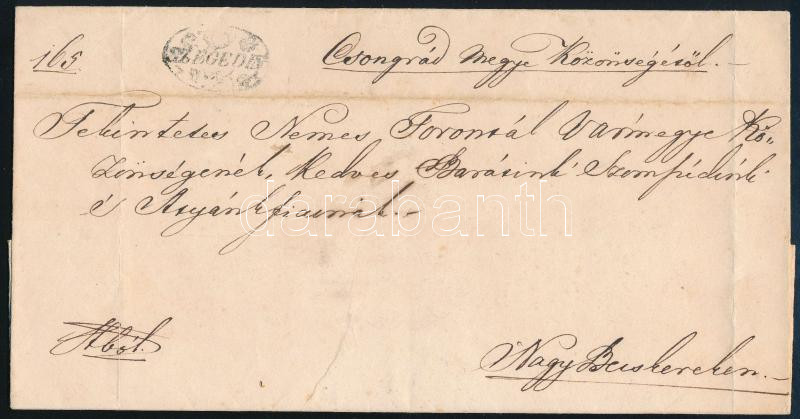 165.
SZEGEDIN
Csongrád Megye Közönségétöl.-
Tekintetes Nemes Torontál Vármegye Kö„
zönségének, Kedves Barátink Szomszédink
é Atyánkfiainak.-
darabanth
Nagy Becskereken.-